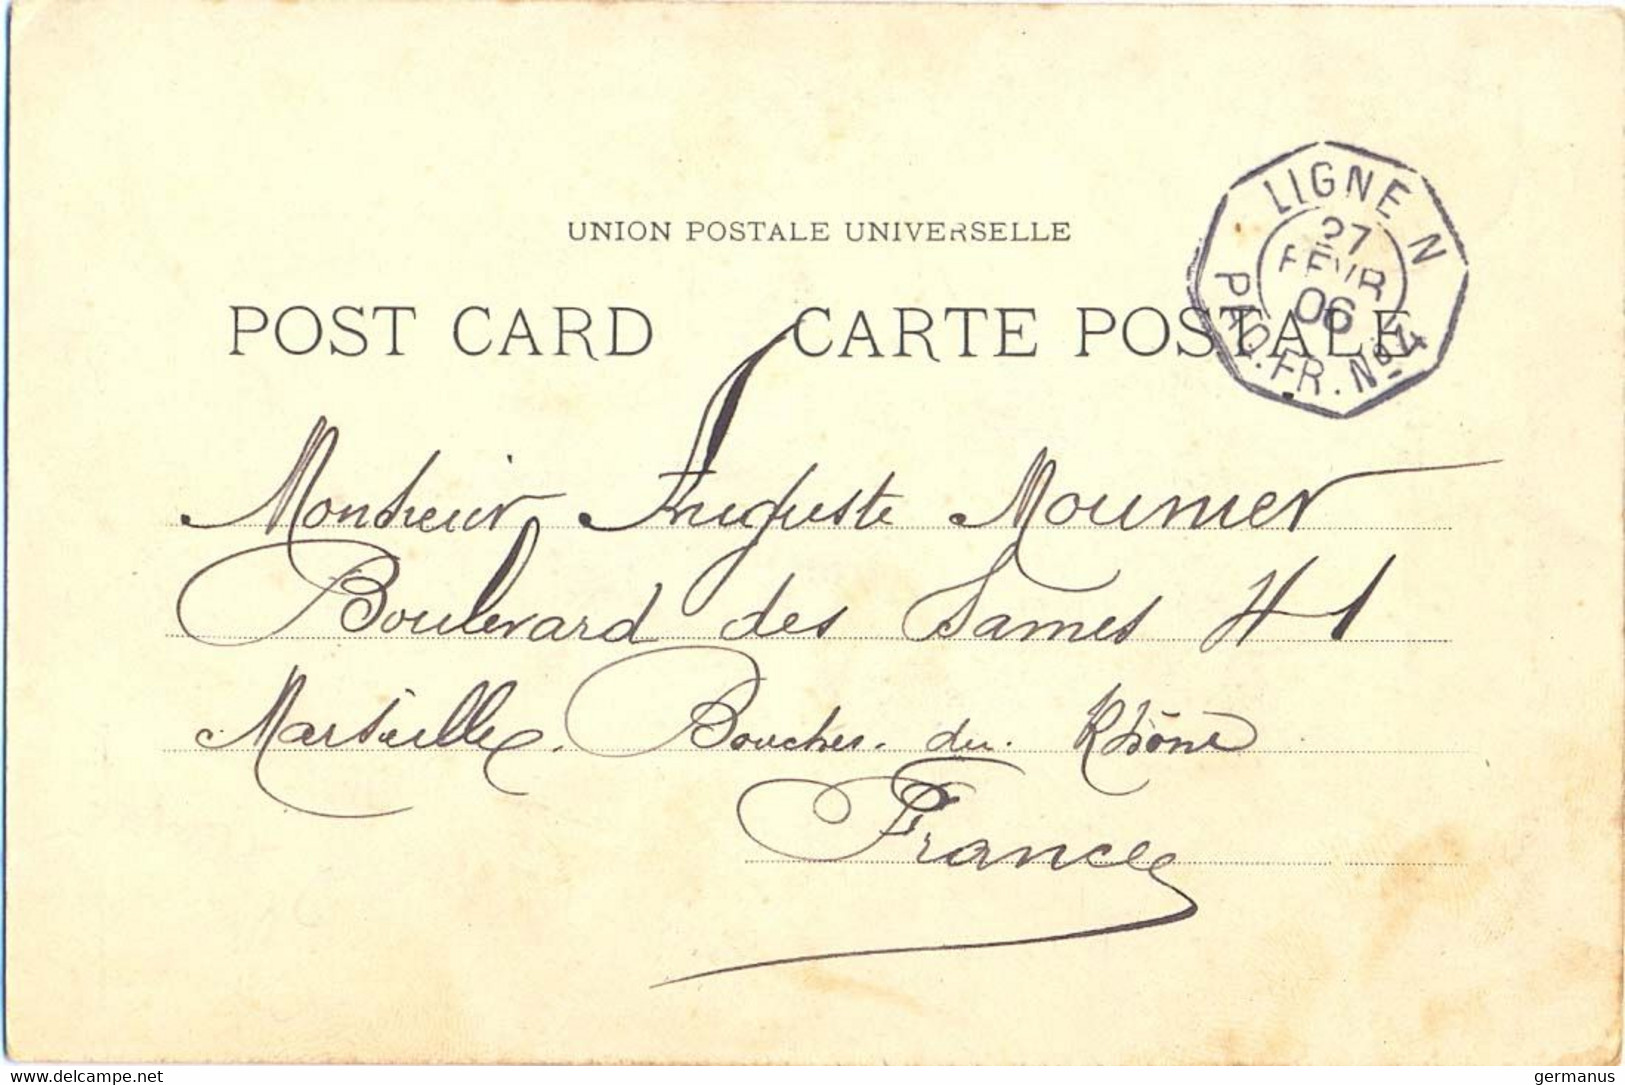 UNION POSTALE UNIVERSELLE
POST CARD CARTE POSTALE
LIGNE N
27
FEVR
06
PAQ. FR. Nº 4
Monsieur Auguste Mounier
Boulevard des Dames 41
Marseille. Bouches. du. Rhône
France
www.delcampe.net
germanus